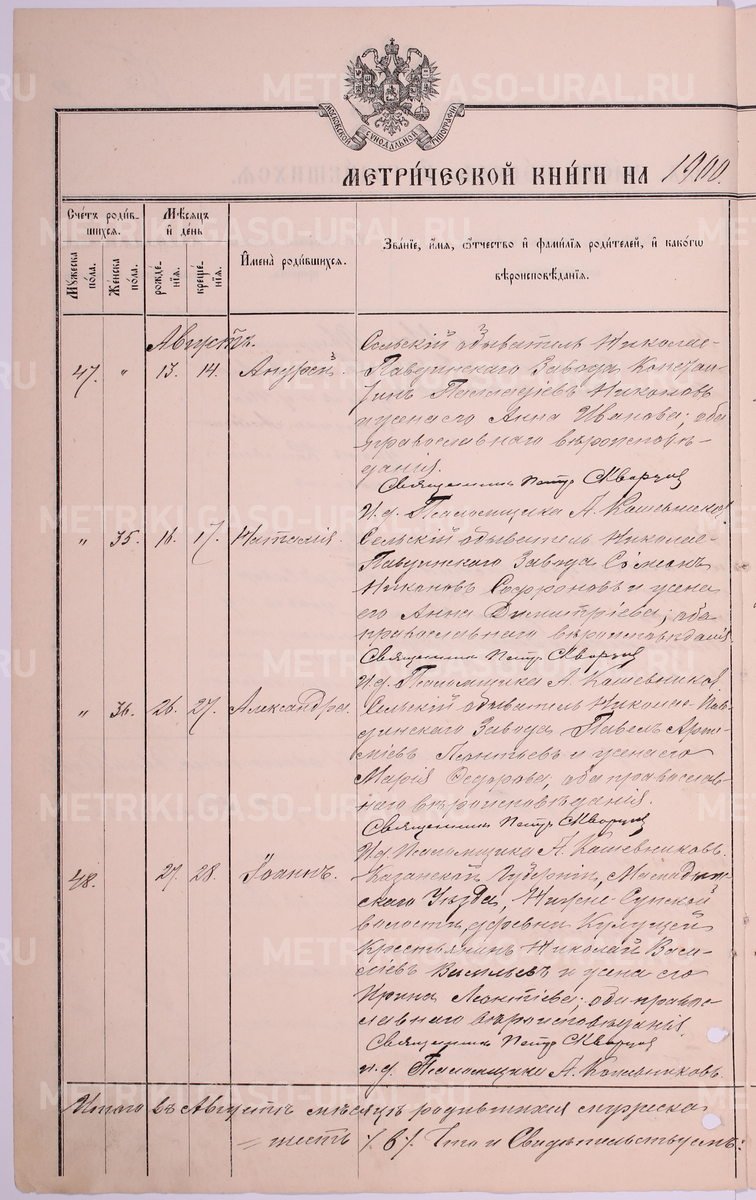 МОСКОВСКОЙ СѴНОДАЛЬНОЙ ТИПОГРАФІИ
МЕТРИ́ЧЕСКОЙ КНИ́ГИ НА 1900.
Счетъ роди́в-
шихся.
Мѣсяцъ
и҆ де́нь
И҆мена̀ роди́вшихся.
Зва́ніе, и҆́мя, ѻ҆́тчество и҆ фами́лія роди́телей, и҆ како́гѡ
вѣроисповѣ́данія.
Му́жеска по́ла.
Же́нска по́ла.
рожде́-нія.
креще́-нія.
Августъ.
47. " 13. 14. Андрей.
Сельскій обыватель Николае-
Павдинскаго Завода Констан-
тинъ Палладіевъ Никоновъ
и жена его Анна Иванова; оба
православнаго вѣроисповѣ-
данія.
Священникъ Петръ Скворцов
И. д. Псаломщика А. Кожевников
" 35. 16. 17. Наталія.
Сельскій обыватель Николае-
Павдинскаго Завода Симеонъ
Никоновъ Софроновъ и жена
его Анна Димитріева; оба
православнаго вѣроисповѣданія
Священникъ Петръ Скворцов
И. д. Псаломщика А. Кожевников
" 36. 26. 27. Александра.
Сельскій обыватель Николае-Пав-
динскаго Завода Павелъ Арте-
міевъ Леонтьевъ и жена его
Марія Ѳедорова, оба православ-
наго вѣроисповѣданія.
Священникъ Петръ Скворцов
И. д. Псаломщика А. Кожевниковъ.
48. 27. 28. Іоаннъ.
Казанской Губерніи, Мамадыж-
скаго Уѣзда, Нижне-Сунской
волости, деревни
Крестьянинъ Николай Васи-
ліевъ Васильевъ и жена его
Ирина Леонтіева; оба право-
славнаго вѣроисповѣданія.
Священникъ Петръ Скворцов
и. д. Псаломщика А. Кожевниковъ.
Итого въ Августѣ мѣсяцѣ родившихся мужеска
= шесть /. 6 /. Что и Свидѣтельствуемъ:
METRIKI.GASO-URAL.RU